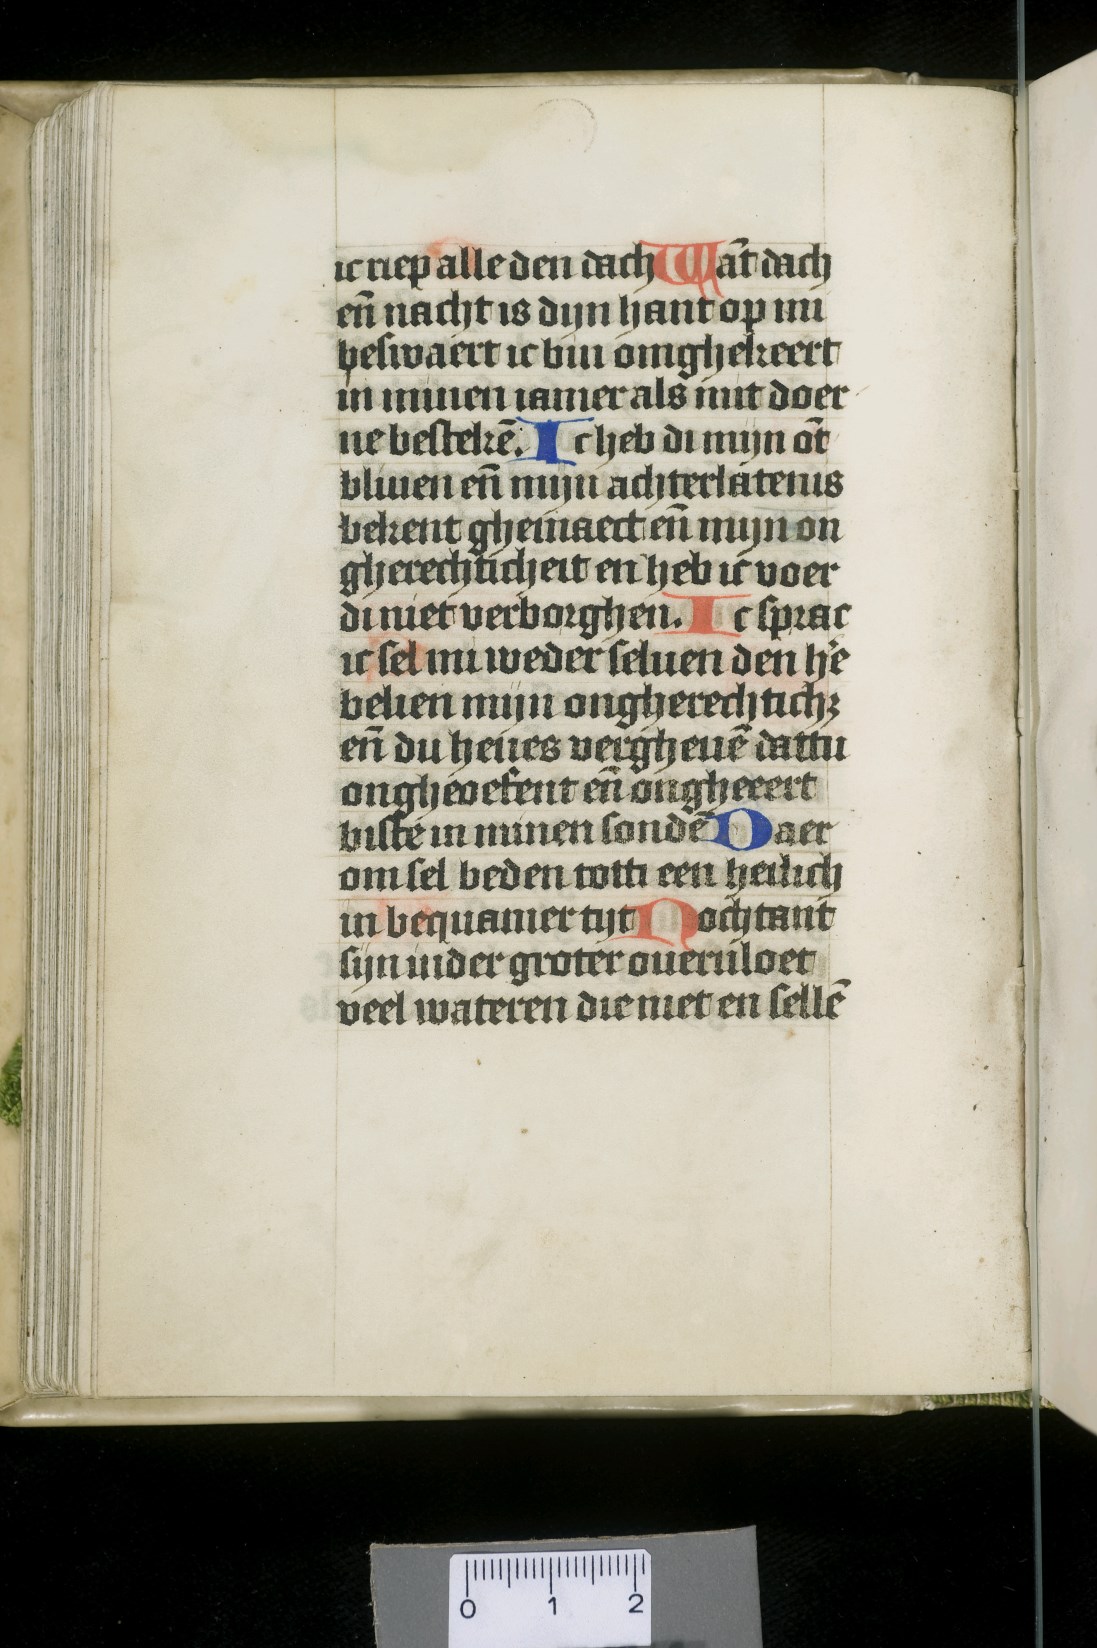 ic riep alle den dach Wāt dach
en̄ nacht is dijn hant op mi
beswaert ic bin omghekeert
in minen iamer als mit doer
ne bestekē. Ic heb di mijn ōt
bliuen en̄ mijn achterlatenis
bekent ghemaect en̄ mijn on
gherechticheit en heb ic voer
di niet verborghen. Ic sprac
ic sel mi weder seluen den h'e
belien mijn ongherechtichꝫ
en̄ du heues vergheuē dattu
ongheoefent en̄ ongheeert
biste in minen sondē Daer
om sel beden totti een heilich
in bequamer tijt Nochtant
sijn inder groter oueruloet
veel wateren die niet en sellē
0 1 2